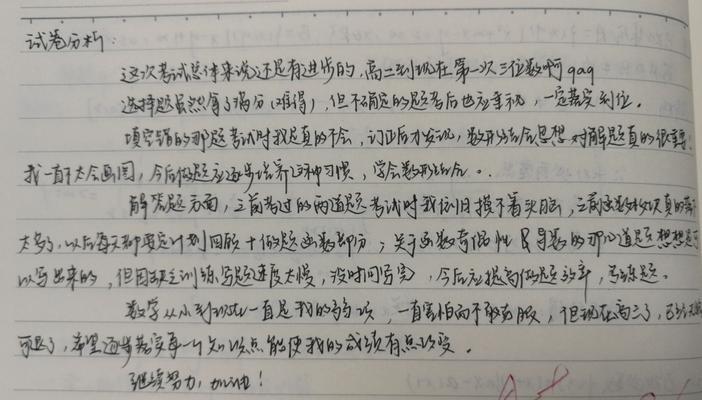 试卷分析：
这次考试总体来说还是有进步的，高二到现在第一次三位数啊qaq
选择题虽然拿了满分（难得），但不确定的题考后也应重视，一定落实到位。
填空错的那题考试时我是真的不会，订正后才发现，数形结合思想对解题真的很重要！
我一直不大会画图，今后做题应逐步培养这种习惯，学会数形结合。
解答题方面，之前考过的两道题考试时我依旧摸不着头脑，之前函数欠真的
太多了，以后每天都要定计划回顾+做题函数部分；关于函数奇偶性及导数的那道题想想是可
以写出来的，但因缺乏训练写题速度太慢，没时间写完，今后应提高做题效率，多练题。
数学从小到现在一直是我的弱项，一直害怕而不敢克服，但现在高三了，已
可退了，希望逐步落实每一个知识点能使我的成绩有点改变。
继续努力，加油！